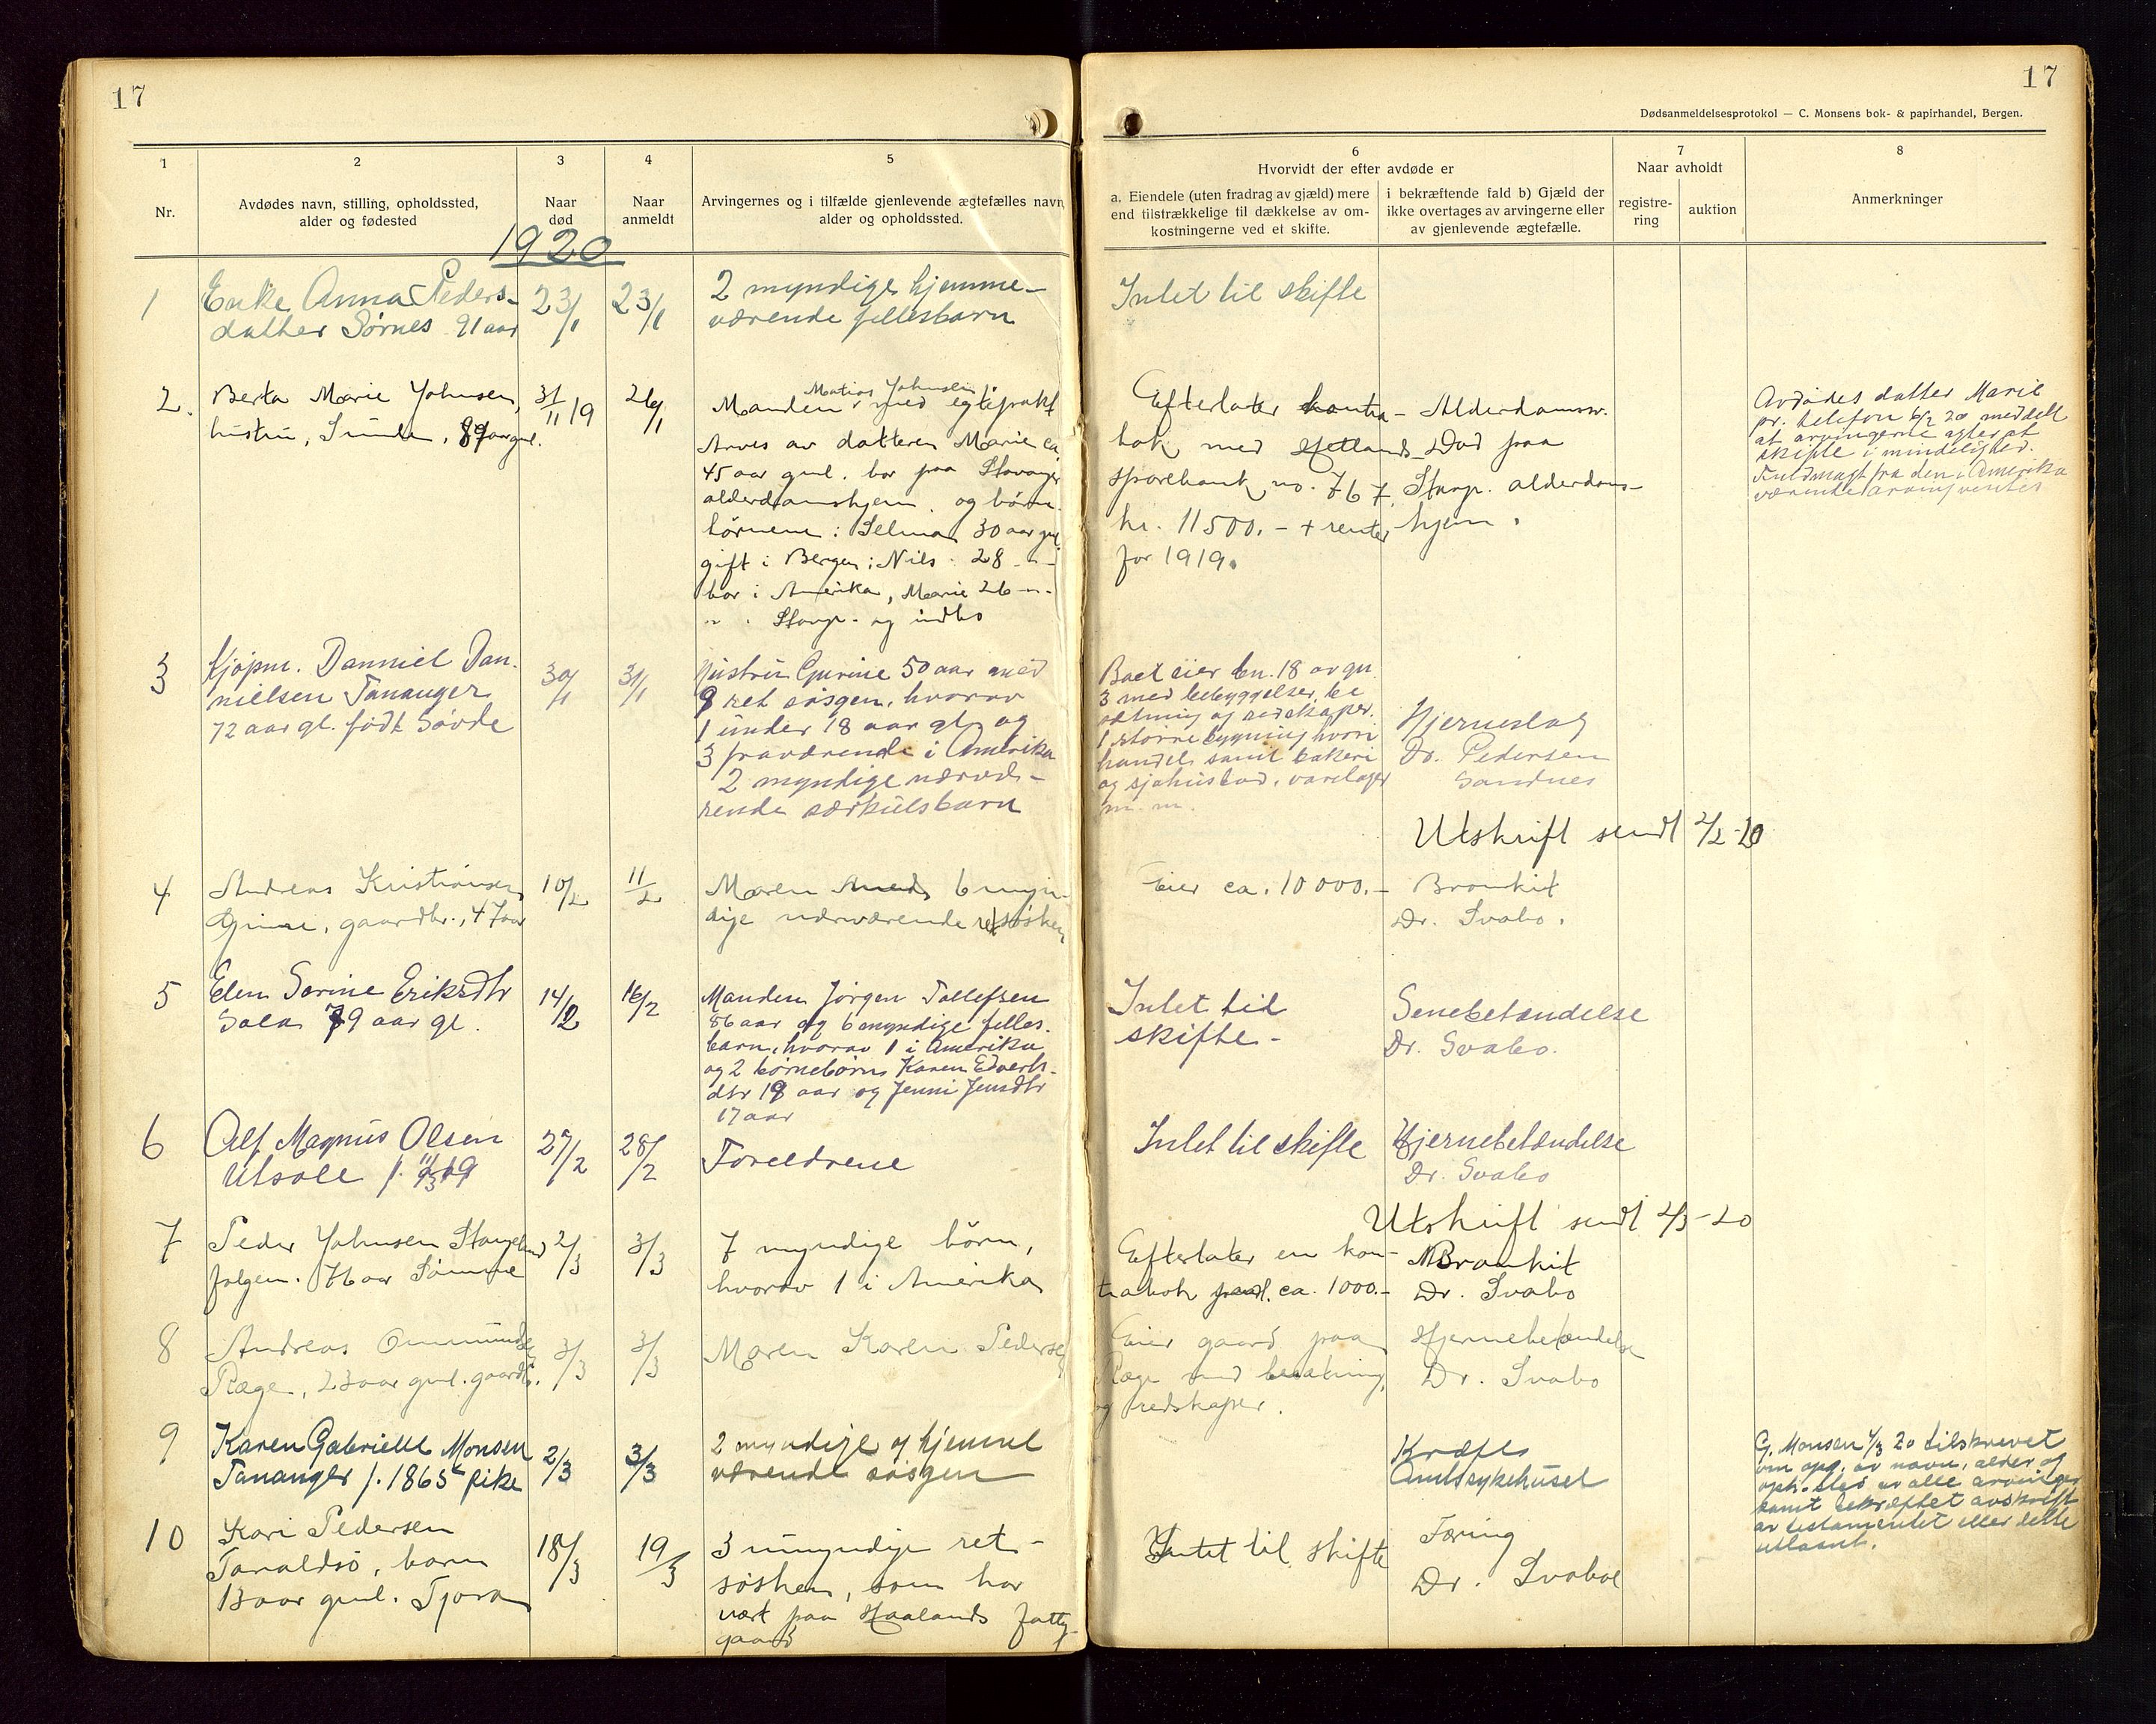 17
17
Dødsanmeldelsesprotokol — C. Monsens bok- & papirhandel, Bergen.
1
2
3
4
5
6
7
8
Nr.
Avdødes navn, stilling, opholdssted,
alder og fødested
Naar
død
Naar
anmeldt
Arvingernes og i tilfælde gjenlevende ægtefælles navn,
alder og opholdssted.
Hvorvidt der efter avdøde er
a. Eiendele (uten fradrag av gjæld) mere
end tilstrækkelige til dækkelse av om-
kostningerne ved et skifte.
i bekræftende fald b) Gjæld der
ikke overtages av arvingerne eller
av gjenlevende ægtefælle.
Naar avholdt
registre-
ring
auktion
Anmerkninger
1920
1
Enke Anna Peders-
datter Sørnes 91 aar
23/1
23/1
2 myndige hjemme-
værende fellesbarn
Intet til skifte
2.
Berta Marie Johnsen,
hustru, Sunde, 89 aar gml.
31/11 19
26/1
Matias Johnsen
Manden, med egtepakt
Arves av datteren Marie ca
45 aar gml. bor paa Stavanger
alderdomshjem. og børne-
børnene: Selma 30 aar gml.
gift i Bergen; Nils 28 -"-
bor i Amerika, Marie 26 -"-
" " Stavgr. og indbo
Efterlater kontra-
bok med Hetlands
sparebank no. 767
kr. 11500.- + renter
for 1919.
Alderdomssv.
Død paa
Stavgr. alderdoms-
hjem.
Avdødes datter Marie
pr. telefon 6/2 20 meddelt
at arvingerne agter at
skifte i mindelighed.
Fuldmagt fra den i Amerika
værende arving ventes
3
Kjøpm. Danniel Dan-
nielsen Tananger
72 aar gl. født Søvde
30/1
31/1
Hustru Gurine 50 aar med
9 ret søsgen, hvorav
1 under 18 aar gl. og
3 fraværende i Amerika
2 myndige nærvæ-
rende særkulsbarn
Boet eier bn. 18 av gn.
3 med bebyggelser, be
sætning og redskaper.
1 større bygning hvori
handel samt bakeri
og sjøhusbod, varelager
m.m.
Hjerneslag
Dr. Pedersen
Sandnes
Utskrift sendt 2/2-20
4
Andreas Kristiansen
Grime, gaardbr., 47 aar
10/2
11/2
Moren 6 myn-
dige nærværende retsøsken
Eier ca. 10000.-
Bronkit
Dr. Svabo.
5
Elen Sørine Eriksdtr
Sola 79 aar gl.
14/2
16/2
Manden Jørgen Tollefsen
86 aar og 6 myndige felles-
barn, hvorav 1 i Amerika
og 2 børnebørn Karen Edverts-
dtr 19 aar og Jenni Jensdtr
17 aar
Intet til
skifte-
Senebetændelse
Dr. Svabo.
6
Alf Magnus Olsen
Utsole f. 11/3 19
27/2
28/2
Foreldrene
Intet til skifte
Hjernebetændelse
Dr. Svabo
Utskrift sendt 2/3-20
7
Peder Johnsen Stangeland
følgem. 76 aar Sømme
2/3
3/3
7 myndige børn,
hvorav 1 i Amerika
Efterlater en kon-
trabok ca. 1000.-
Bronkit
Dr. Svabo
8
Andreas Ommundsen
Ræge, 23 aar gml. gaardb.
3/3
3/3
Moren Karen Pedersen
Eier gaard paa
Ræge med besætning
og redskaper.
Hjernebetændelse
Dr. Svabo
9
Karen Gabrielle Monsen
Tananger f. 1865 pike
2/3
3/3
2 myndige og hjemme
værende søsgen
Kræft
Amtssykehuset
G. Monsen 4/3 20 tilskrevet
om opg. av navn, alder og
oph.sted av alle arvinger
samt bekræftet avskrift
av testamentet eller dette
utlaant.
10
Kari Pedersen
Taraldsø, barn
13 aar gml. Tjora
18/3
19/3
3 umyndige ret-
søsken, som har
vært paa Haalands fattig-
gaard
Intet til skifte
Tæring
Dr. Svaboe